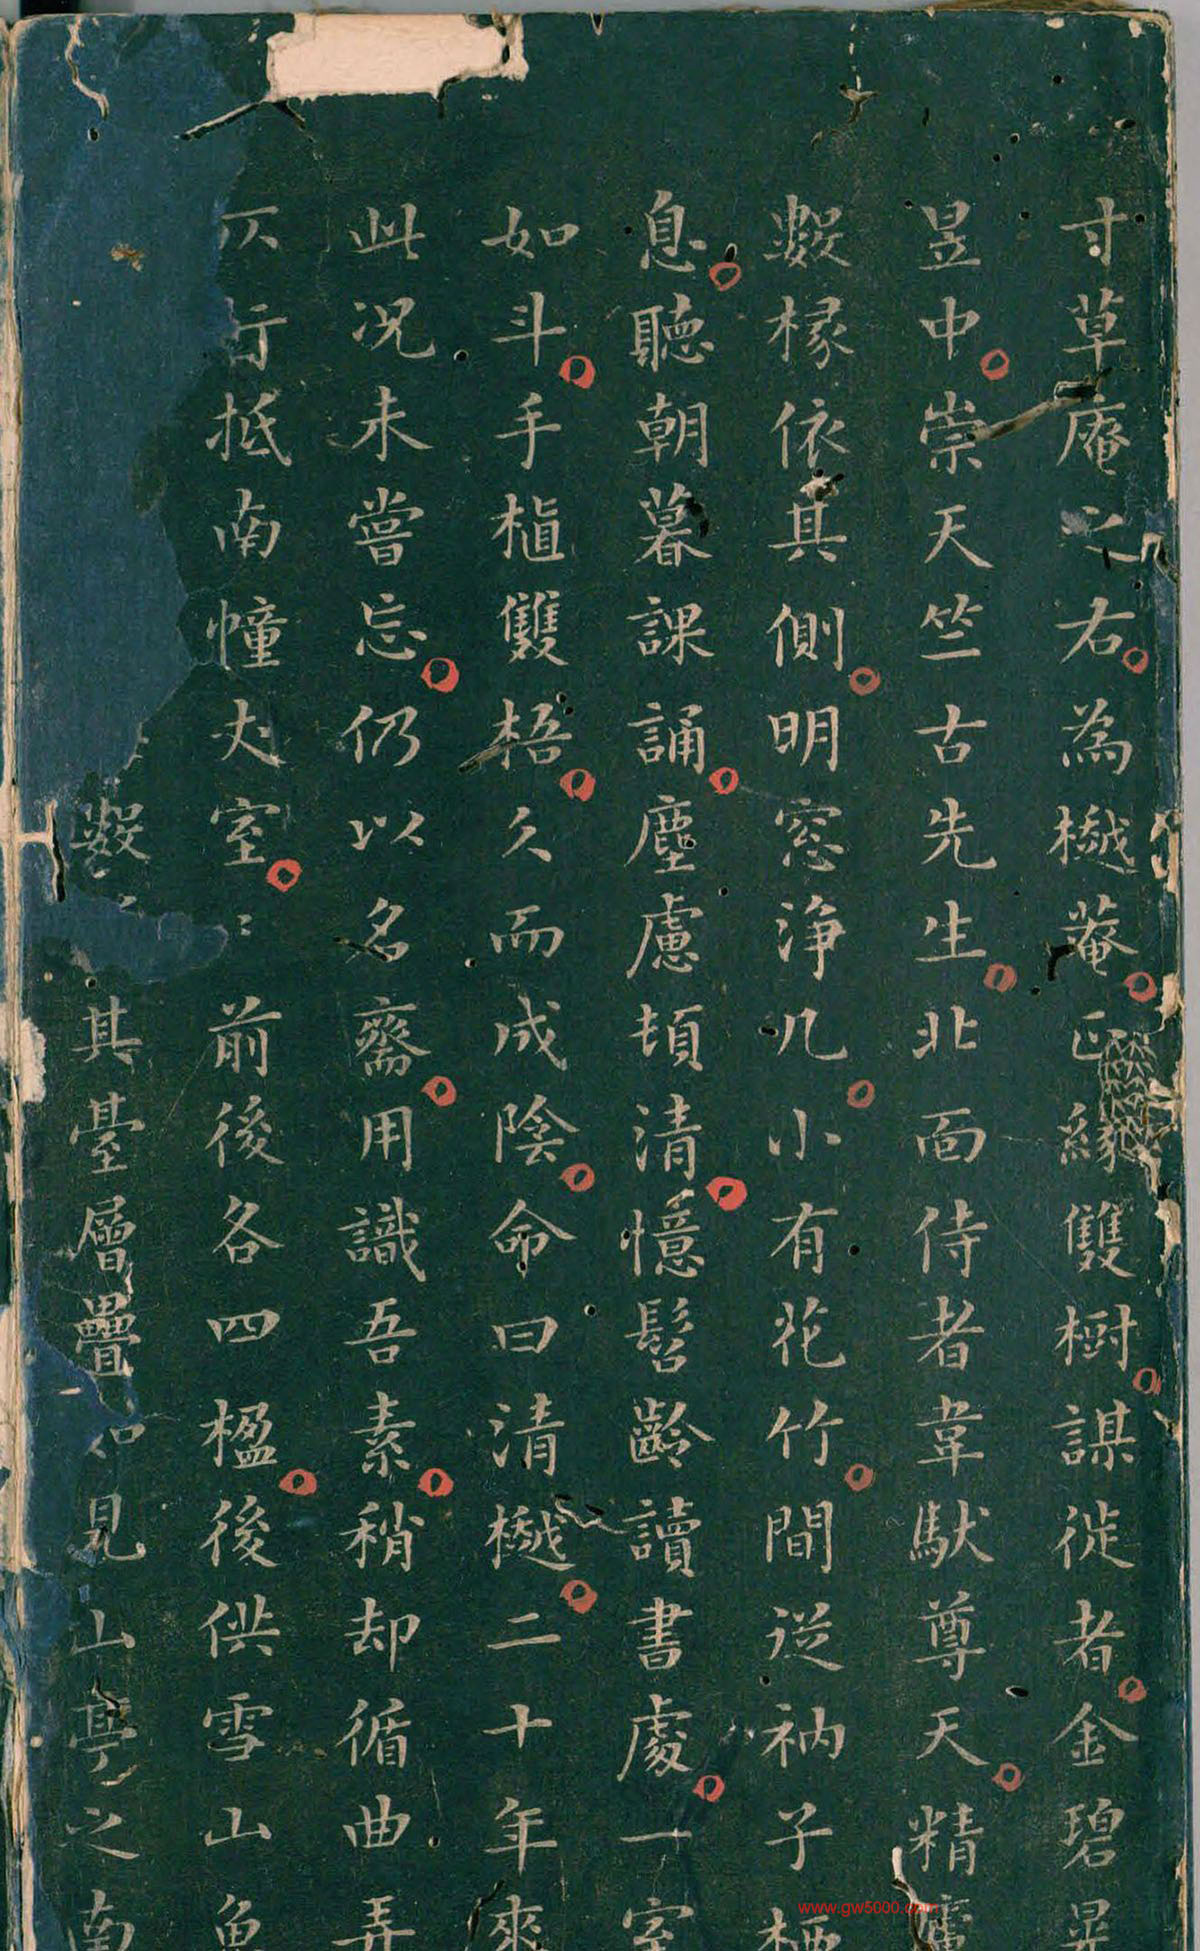 寸草庵之右為樾菴正緣雙樹謀從者金碧晃
昱中崇天竺古先生北面侍者韋馱尊天精廬
數椽依其側明窓浄几小有花竹間從衲子栖
息聽朝暮課誦塵慮頓清憶髫齡讀書處一室
如斗手植雙梧久而成陰命曰清樾二十年來
此況未嘗忘仍以名齋用識吾素稍却循曲弄
行抵南幢大室前後各四楹後供雪山魚
數其臺層疊見山亭之南
www.gw5000.com